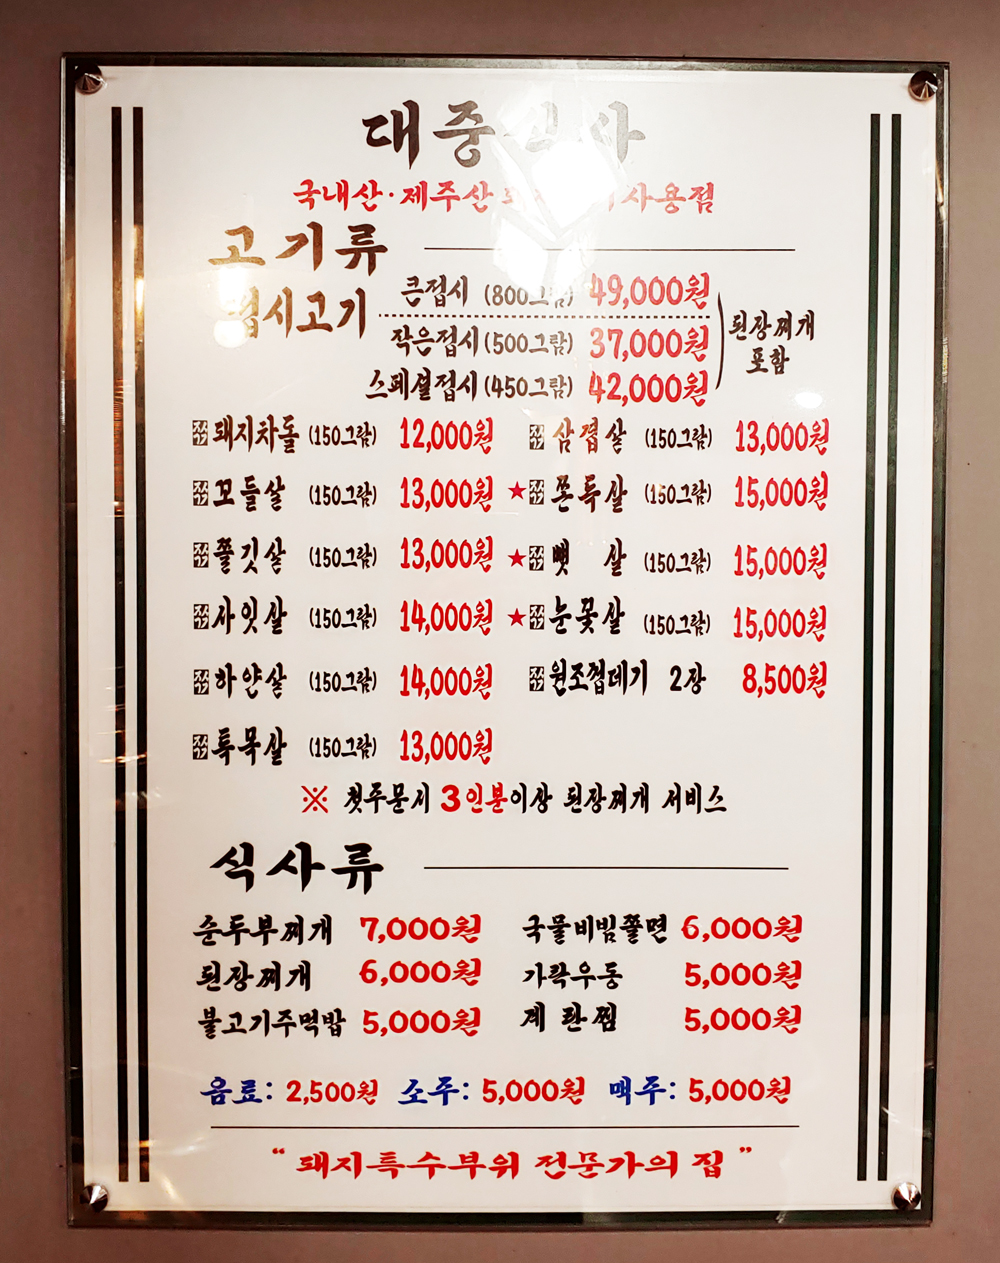 대중식사
국내산·제주산 사용점
고기류
접시고기
큰접시 (800그람) 49,000원
작은접시 (500그람) 37,000원
스페셜접시 (450그람) 42,000원
된장찌개
포함
돼지차돌 (150그람) 12,000원 삼겹살 (150그람) 13,000원
꼬들살 (150그람) 13,000원 ★ 쫀득살 (150그람) 15,000원
쫄깃살 (150그람) 13,000원 ★ 뺏살 (150그람) 15,000원
사잇살 (150그람) 14,000원 ★ 눈꽃살 (150그람) 15,000원
하얀살 (150그람) 14,000원 원조껍데기 2장 8,500원
특목살 (150그람) 13,000원
※ 첫주문시 3인분이상 된장찌개 서비스
식사류
순두부찌개 7,000원 국물비빔쫄면 6,000원
된장찌개 6,000원 가락우동 5,000원
불고기주먹밥 5,000원 계란찜 5,000원
음료: 2,500원 소주: 5,000원 맥주: 5,000원
“돼지특수부위 전문가의 집”